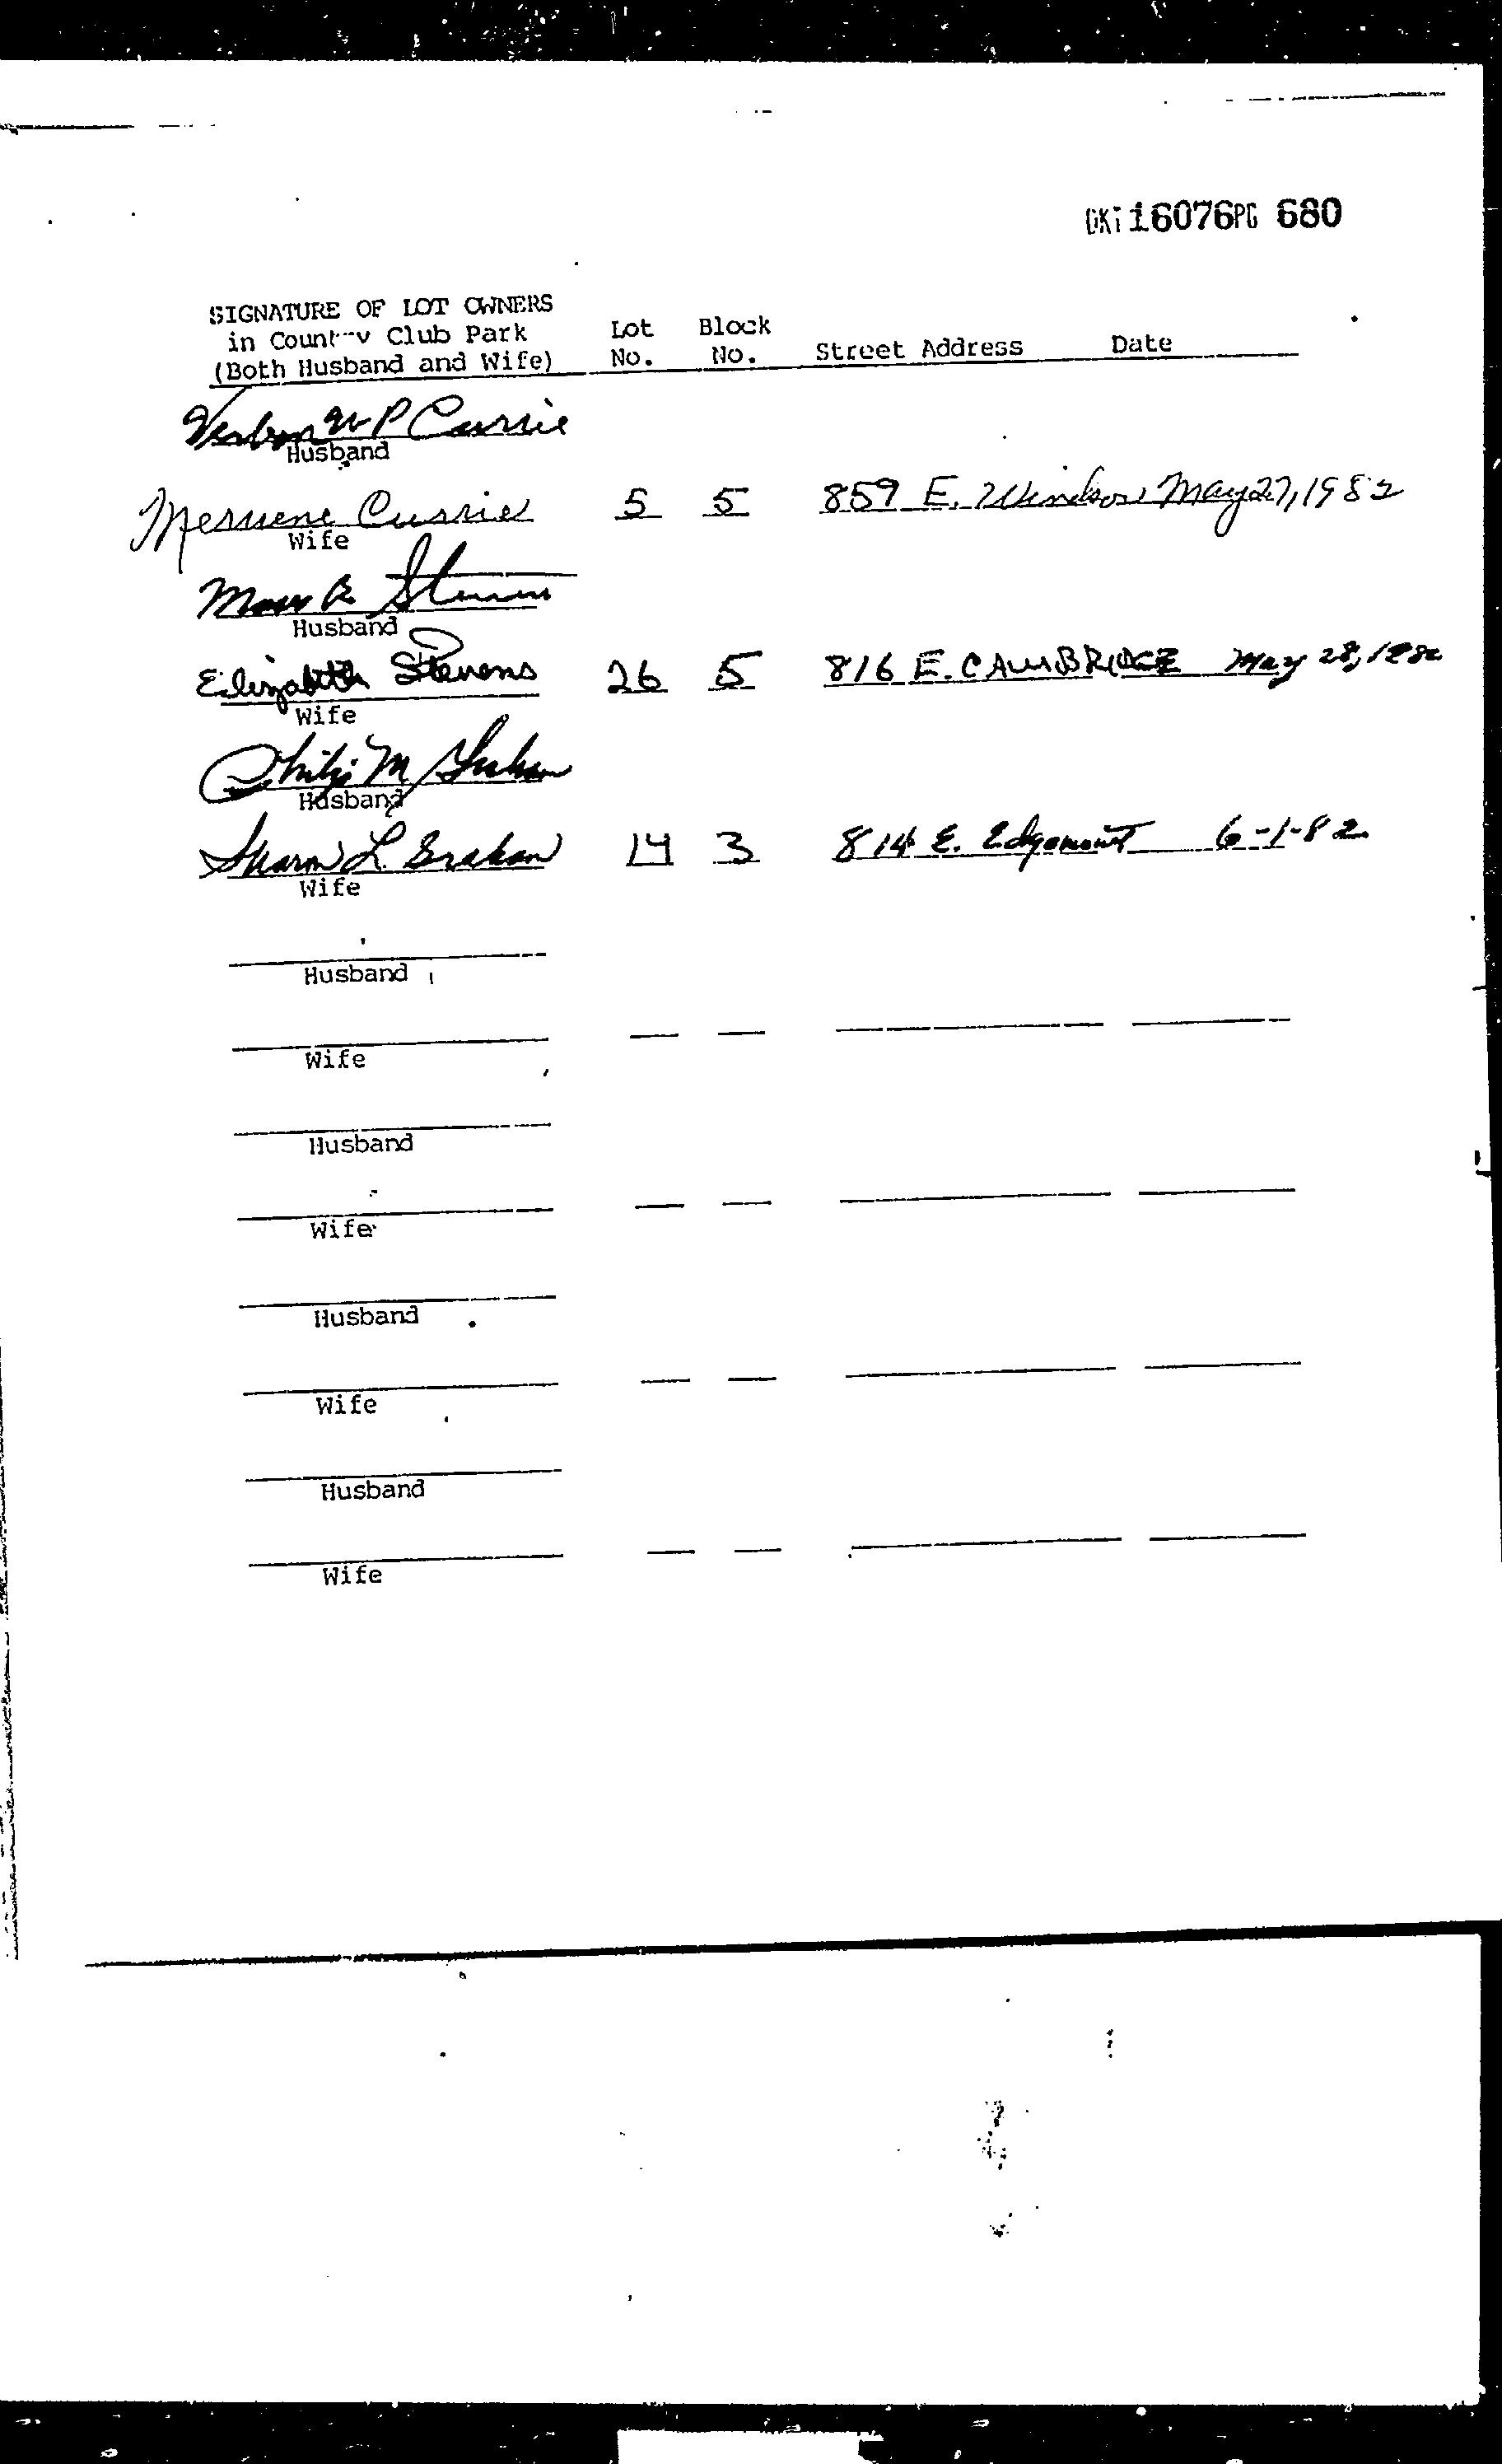 DKT 16076 PG 680
SIGNATURE OF LOT OWNERS
in Country Club Park
(Both Husband and Wife)
Lot No. Block No. Street Address Date
W P Currie
Husband
Currie 5 5 859 E. Windsor May 27, 1982
Wife
Stevens
Husband
Elizabeth Stevens 26 5 816 E. CAMBRIDGE May 28, 1982
Wife
Philip M Graham
Husband
Sharon L. Graham 14 3 814 E. Edgemont 6-1-82
Wife
Husband
Wife
Husband
Wife
Husband
Wife
Husband
Wife